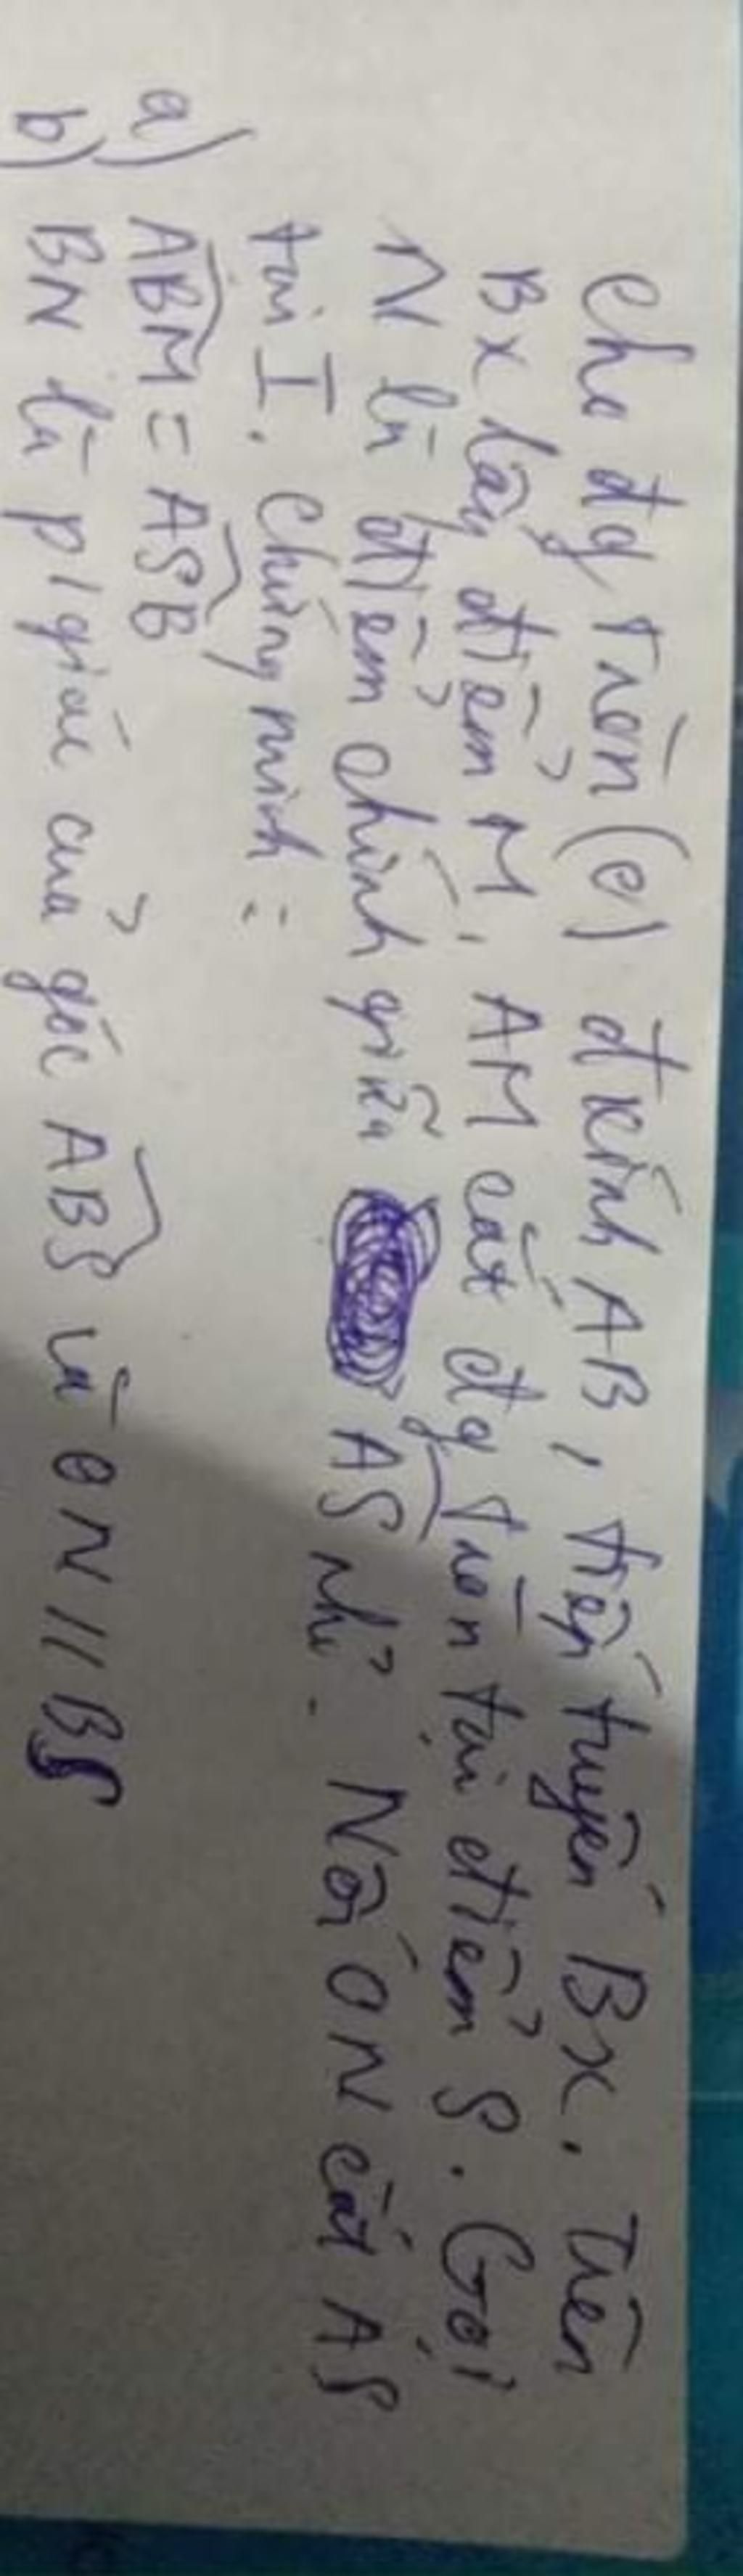 Cho đg tròn (O) đ kính AB, tiếp tuyến Bx. Trên
Bx lấy điểm M, AM cắt đg tròn tại điểm S. Gọi
N là điểm chính giữa AS nhỏ. Nối ON cắt AS
tại I. Chứng minh:
a) ABM = ASB
b) BN là p/giác của góc ABS và ON // BS